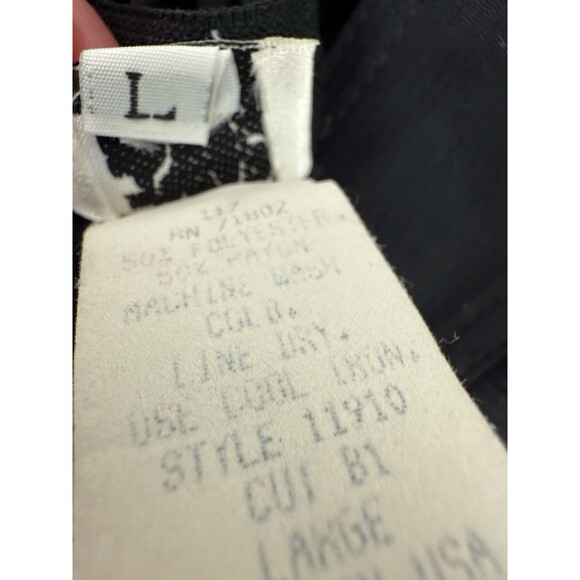 L
117
RN 71802
50% POLYESTER
50% RAYON
MACHINE WASH
COLD.
LINE DRY.
USE COOL IRON.
STYLE 11910
CUT B1
LARGE
USA